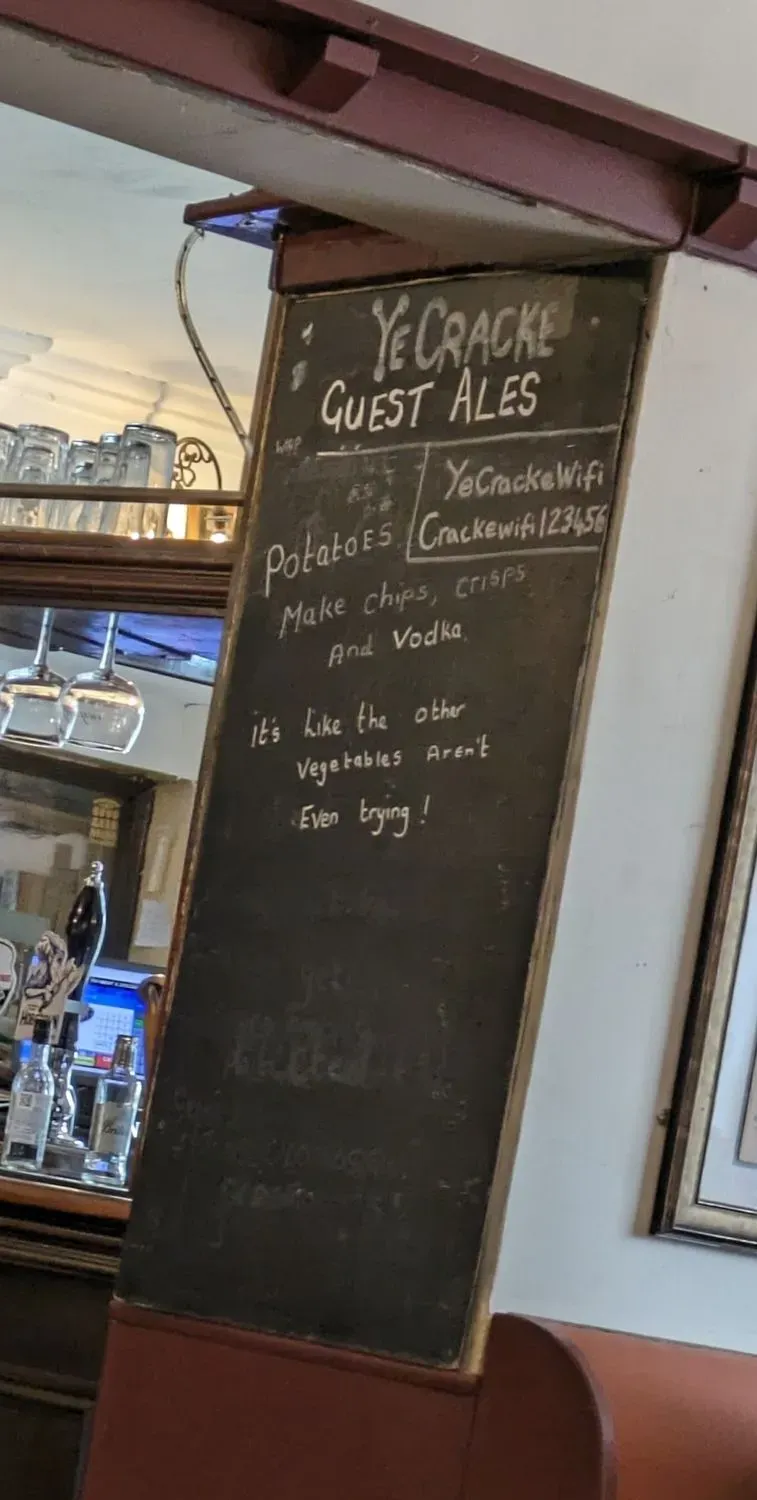 YeCRACKE
GUEST ALES
YeCrackeWifi
Crackewifi123456
PotatoES
Make chips, crisps
And Vodka.
it's Like the other
Vegetables Aren't
Even trying!